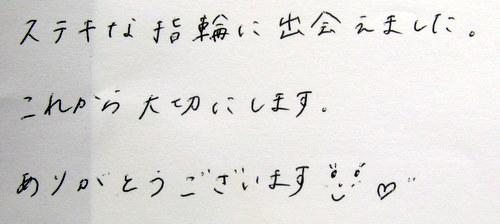 ステキな指輪に出会えました。
これから大切にします。
ありがとうございます♡